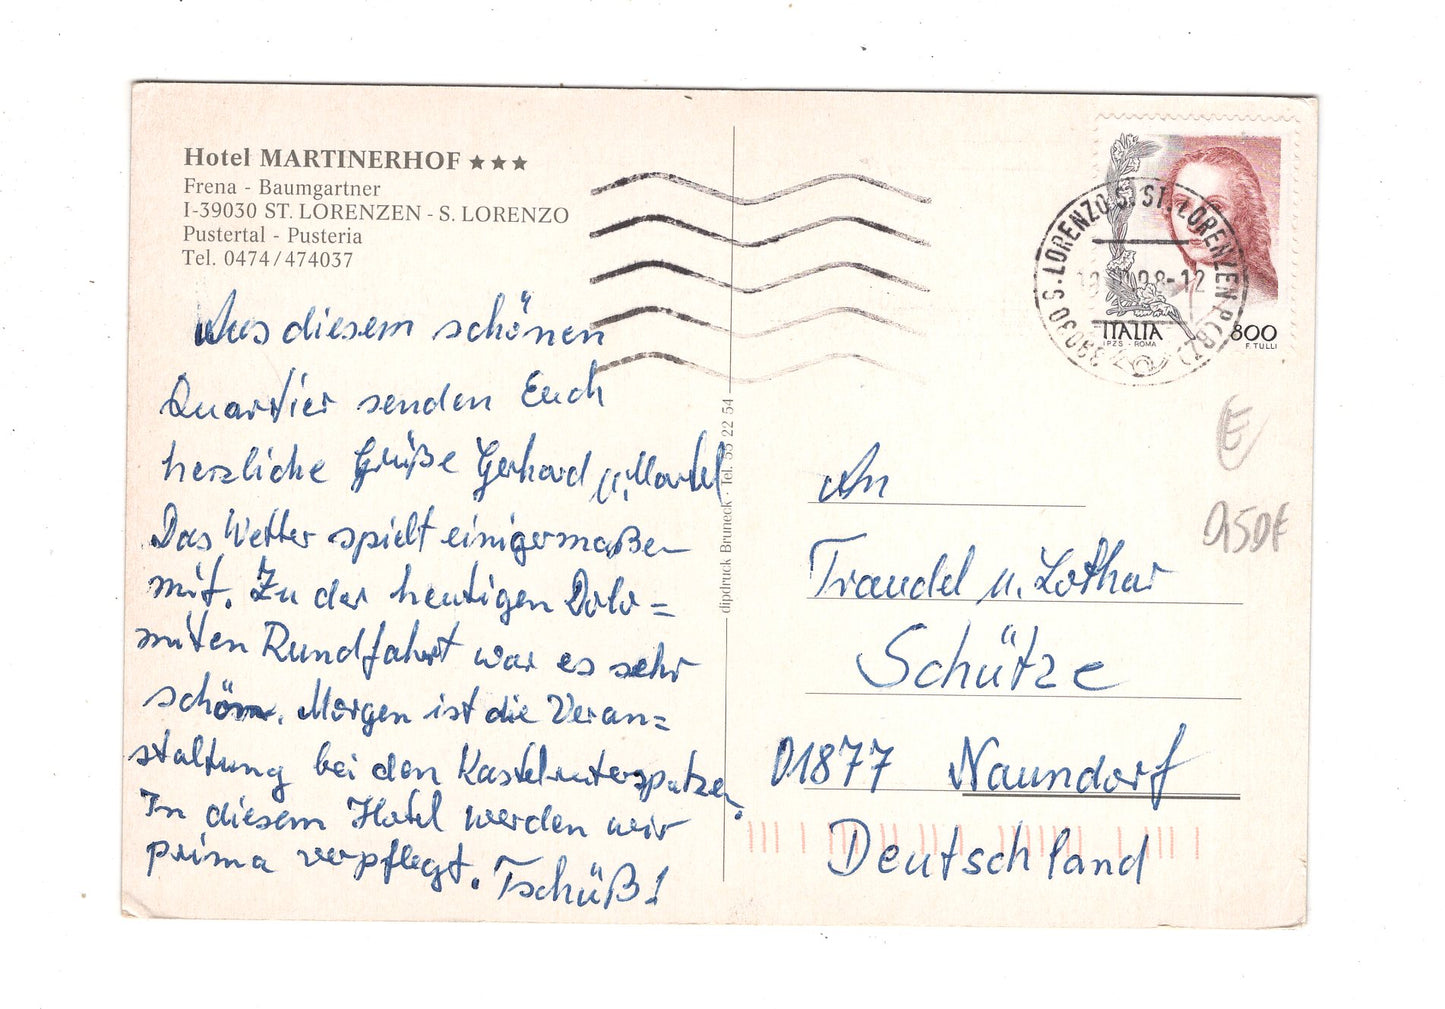 Hotel MARTINERHOF ★★★
Frena - Baumgartner
I-39030 ST. LORENZEN - S. LORENZO
Pustertal - Pusteria
Tel. 0474/474037
Aus diesem schönen
Quartier senden Euch
herzliche Grüße Gerhard u.
Das Wetter spielt einigermaßen
mit. Zu der heutigen Dolo=
miten Rundfahrt war es sehr
schön. Morgen ist die Veran=
staltung bei den Kastelruterspatzen.
In diesem Hotel werden wir
prima verpflegt. Tschüß!
dipdruck Bruneck · Tel. 55 22 54
39030 S. LORENZO S. ST. LORENZEN P. (BZ)
98-12
ITALIA
I.P.Z.S. - ROMA
800
F. TULLI
E
An
Traudel u. Lothar
Schütze
01877 Naundorf
Deutschland